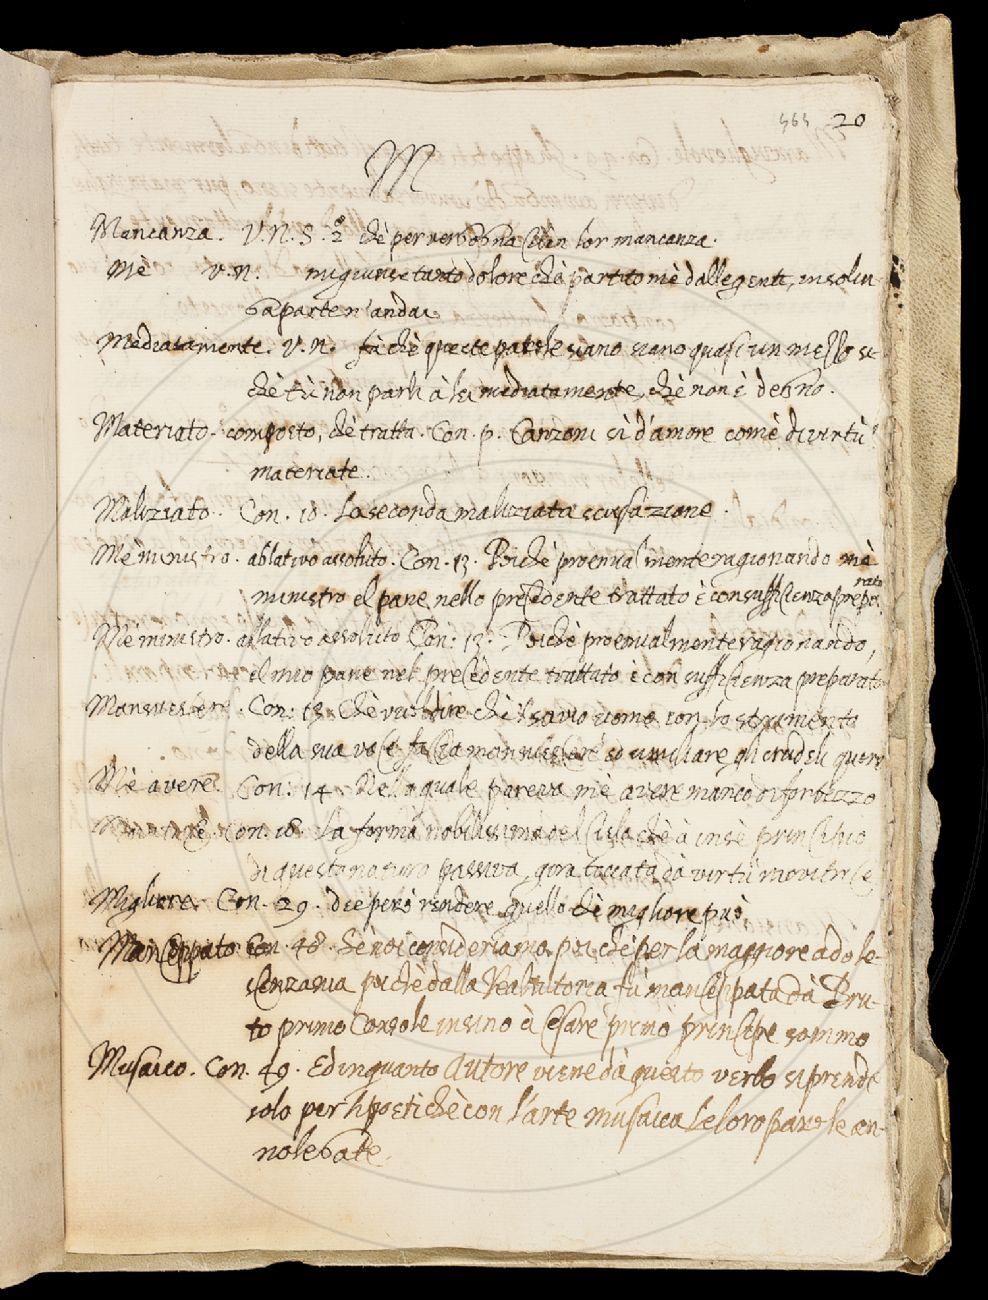 20
M
Mancanza. V.N. S. 2 chè per vergogna celan lor mancanza.
Mè V.N. mi giunse tanto dolore chè partito mè dalle genti, in solin-
ga parte n'andai
Mediatamente. V.N. fà chè queste parole siano siano quasi un mezzo si
chè tù non parli à lei mediatamente, chè non è degno.
Materiato. composto, chè tratta. Con. p. Canzoni si d'amore comè di virtù
materiate.
Maliziato. Con. 10. La seconda maliziata scusazione.
Mè ministro. ablativo assoluto. Con. 13. Poichè proemialmente ragionando mè
ministro el pane nello precedente trattato è con sufficienza prepa
rato
Mè ministro. ablativo assoluto Con. 13. Poichè proemialmente ragionando,
el mio pane nel precedente trattato è con sufficienza preparato
Mansuescere. Con. 13. Chè vuol dire chè 'l savio uomo con lo strumento
della sua voce facia mansuescere e umiliare gli crudeli quori
Mè avere. Con. 14. Nella quale pareva mè avere manco di fortezzo
Con. 18. La forma nobilissima del cielo chè à in sè principio
di questa natura passiva, gira toccata dà virtù motrice
Migliore. Con. 29. dee però rendere quello chè migliore può
Manceppato. Con. 48. Se noi consideriamo poi chè per la maggiore adole-
scenza sua poi chè dalla Reale tutoria fù mancippata dà Bru-
to primo Console insino à Cesare primò principe sommo
Musaico. Con. 49. Ed in quanto Autore viene dà questo verbo si prende
solo per li poeti chè con l'arte musaica le loro parole àn-
no legate.